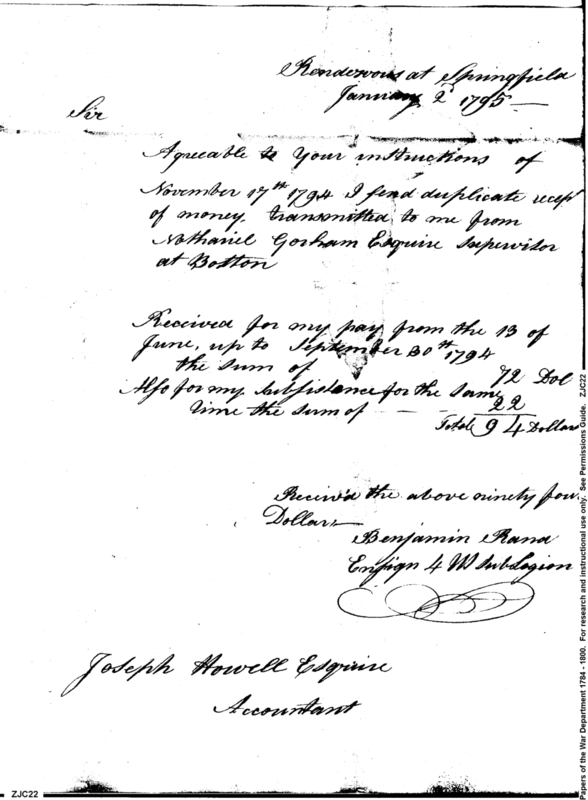 Rendezvous at Springfield
January 2d 1795 —
Sir
Agreeable to Your instructions of
November 17th 1794 I send duplicate recept
of money transmitted to me from
Nathaniel Gorham Esquire Supervisor
at Boston
Received for my pay from the 13 of
June, up to September 30th 1794
the sum of 72 Dol
Also for my Subsistence for the same
time the sum of — — — 22
Total 94 Dollars
Receiv'd the above ninety four
Dollars
Benjamin Rand
Ensign 4 U S Sub Legion
Joseph Howell Esquire
Accountant
ZJC22
Papers of the War Department 1784 - 1800. For research and instructional use only. See Permissions Guide. ZJC22